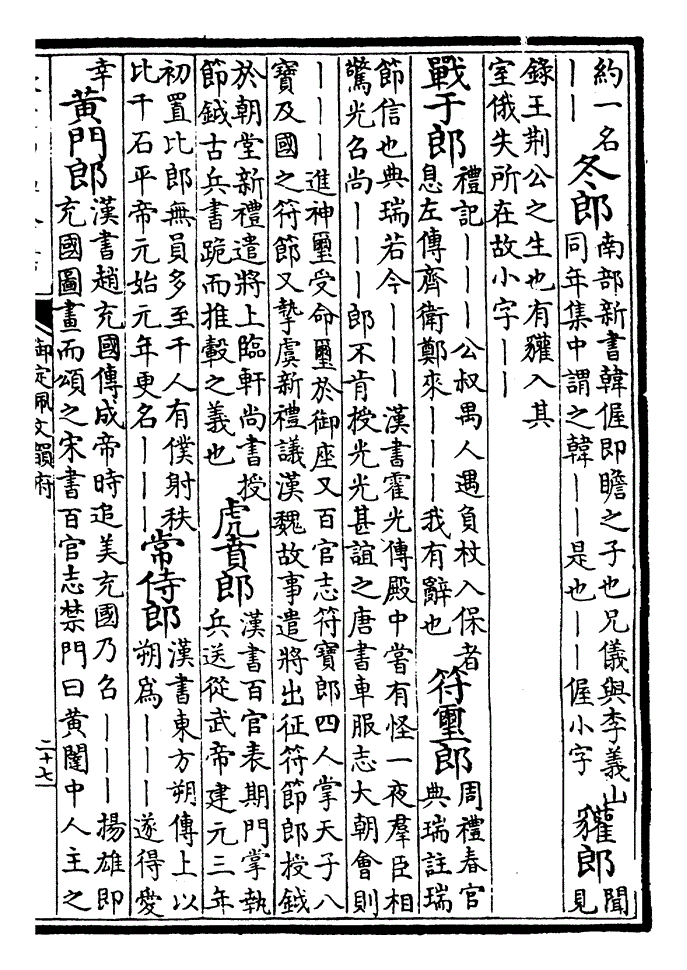 約一名
——
冬郎
南部新書韓偓即瞻之子也兄儀與李義山
同年集中謂之韓——是也——偓小字
貛郎
聞
見
錄王荆公之生也有貛入其
室俄失所在故小字——
戰于郎
禮記———公叔禺人遇負杖入保者
息左傳齊衛鄭來———我有辭也
符璽郎
周禮春官
典瑞註瑞
節信也典瑞若今———漢書霍光傳殿中嘗有怪一夜羣臣相
驚光召尚———郎不肯授光光甚誼之唐書車服志大朝會則
———進神璽受命璽於御座又百官志符寶郎四人掌天子八
寶及國之符節又摯虞新禮議漢魏故事遣將出征符節郎授鉞
於朝堂新禮遣將上臨軒尚書授
節鉞古兵書跪而推轂之義也
虎賁郎
漢書百官表期門掌執
兵送從武帝建元三年
初置比郎無員多至千人有僕射秩
比千石平帝元始元年更名———
常侍郎
漢書東方朔傳上以
朔為———遂得愛
幸
黄門郎
漢書趙充國傳成帝時追美充國乃召———揚雄即
充國圖畫而頌之宋書百官志禁門曰黄闥中人主之
御定佩文韻府
二十七